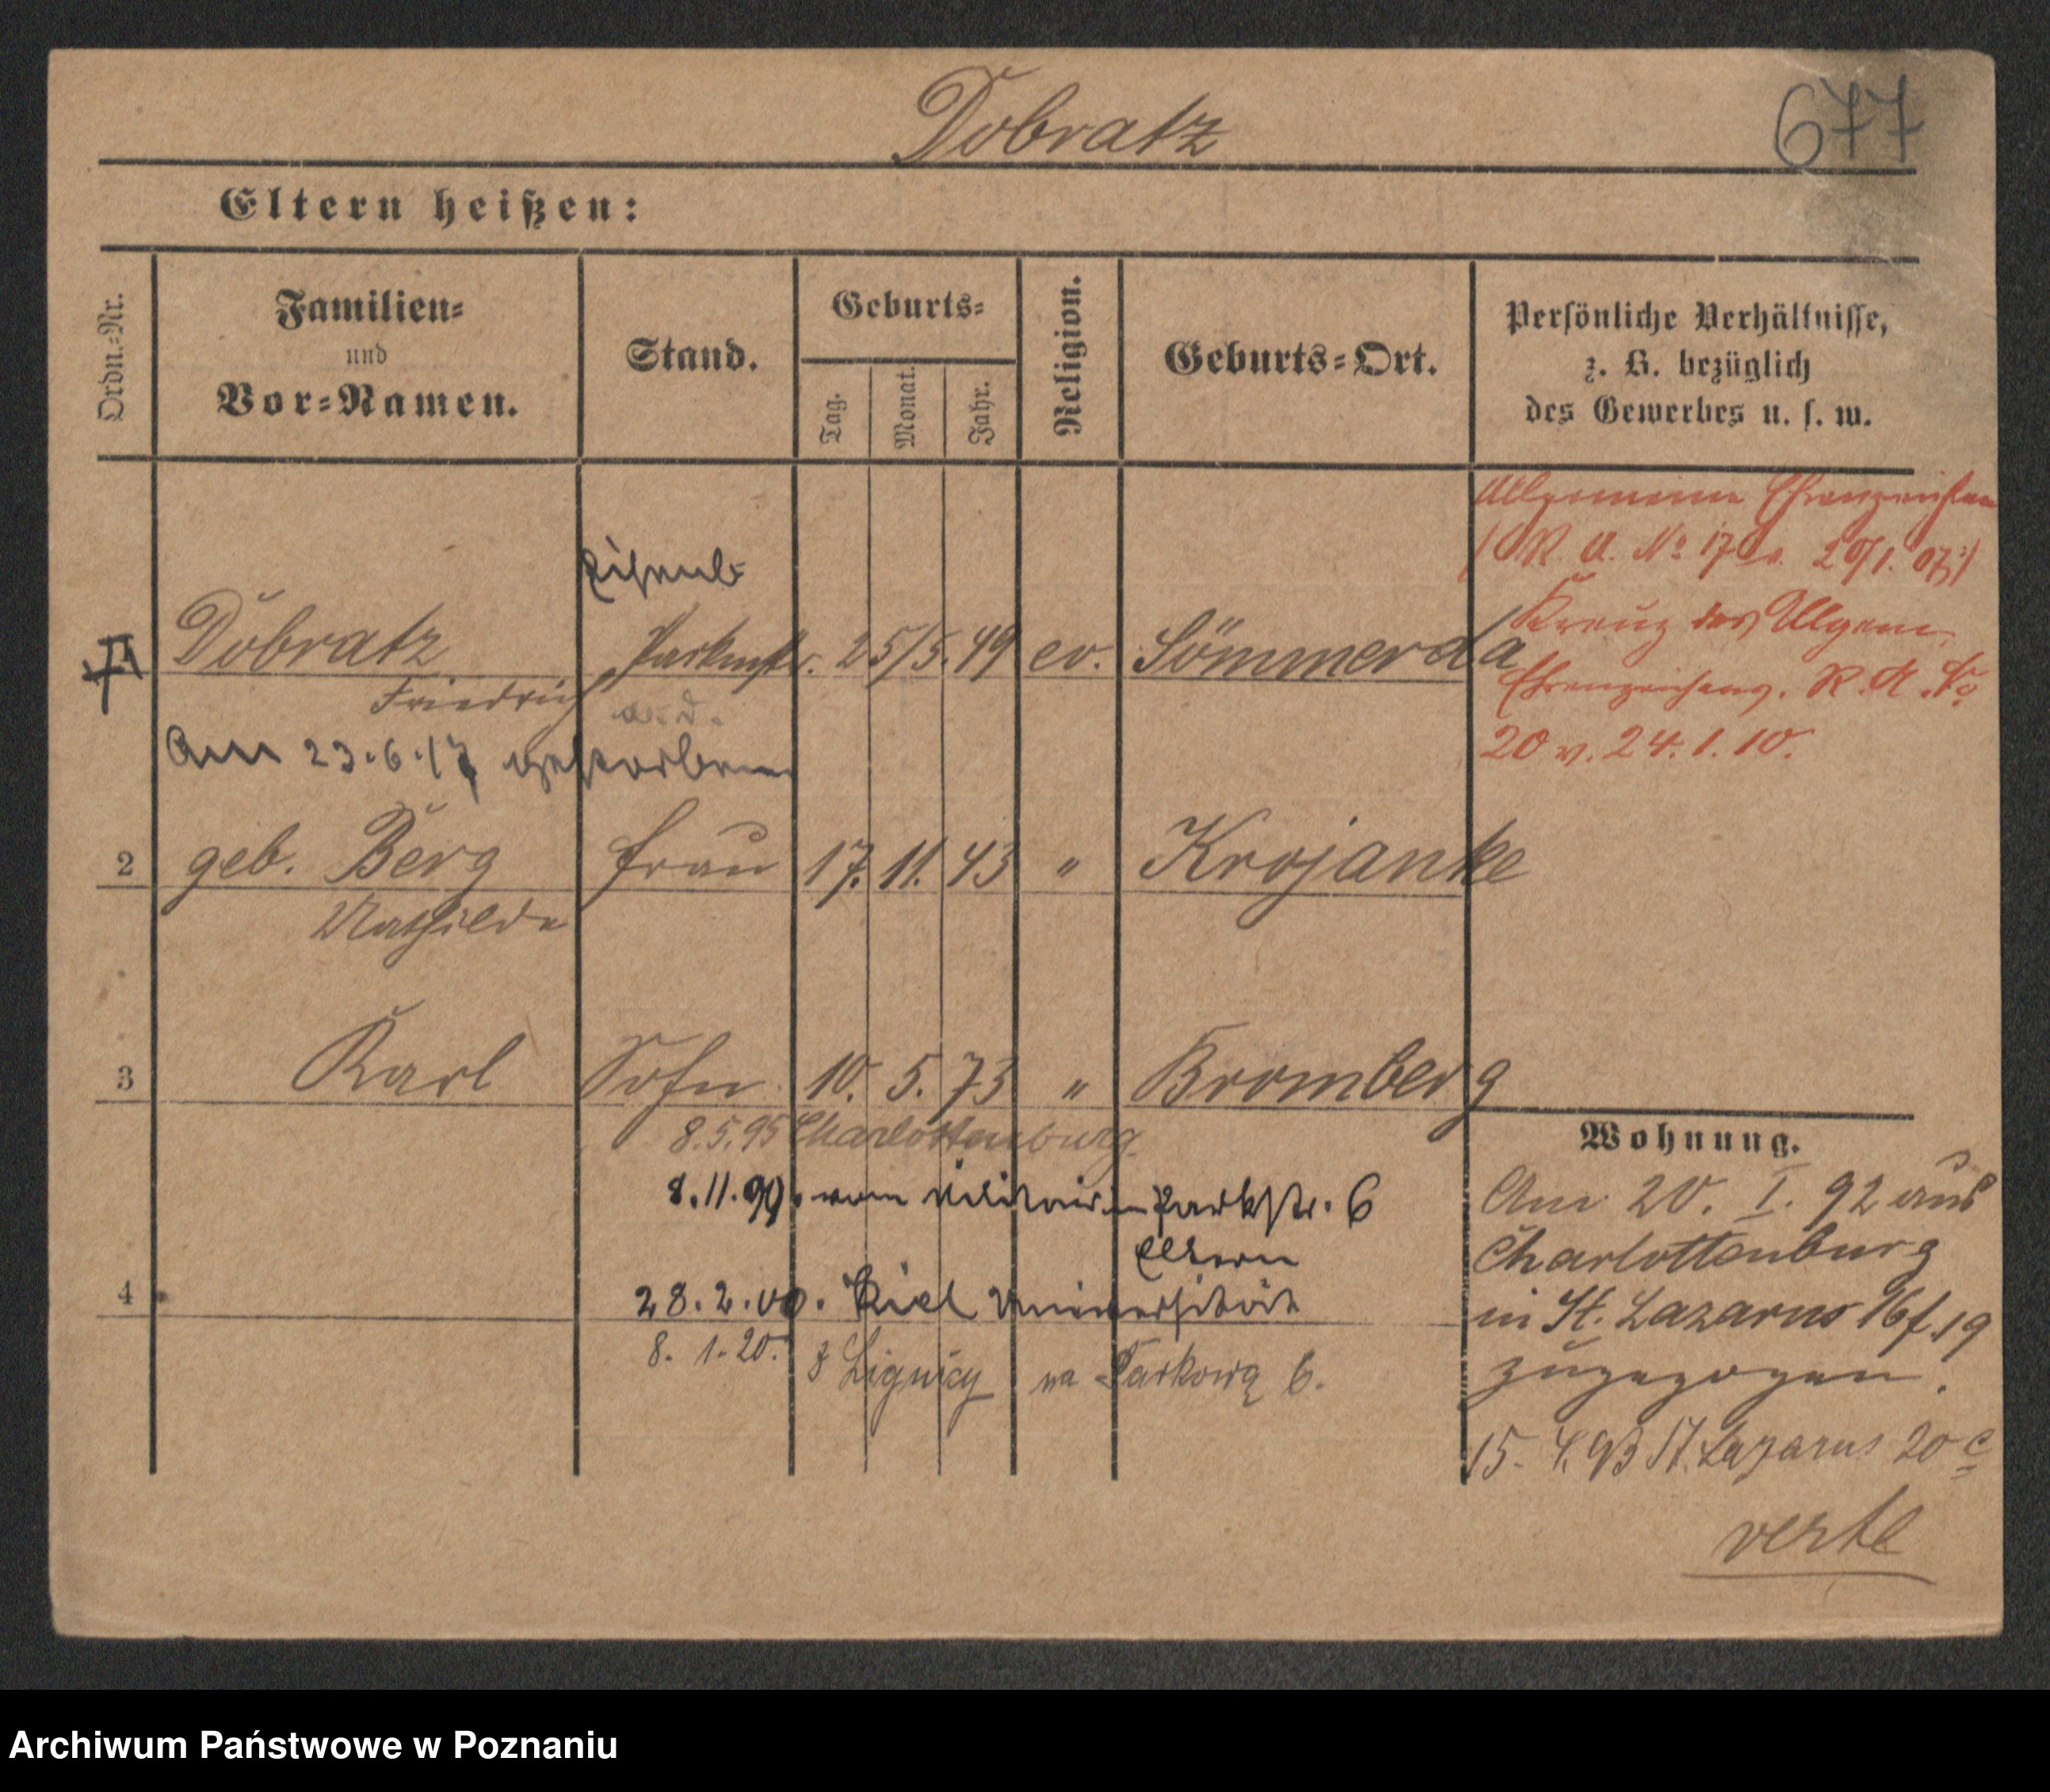 Dobratz
677
Eltern heißen:
Ordn.=Nr.
Familien=
und
Vor=Namen.
Stand.
Geburts=
Tag.
Monat.
Jahr.
Religion.
Geburts=Ort.
Persönliche Verhältnisse,
z. B. bezüglich
des Gewerbes u. s. w.
Allgemeine Ehrenzeichen
(R. A. No 17 v. 20/1. 07.)
Kreuz des Allgem.
Ehrenzeichens. R. A. No
20 v. 24. 1. 10.
Eisenb=
Dobratz Packmstr. 25/5. 49 ev. Sömmerda
Friedrich a. d.
Am 23.6.17 gestorben
2 geb. Berg Frau 17. 11. 43 " Krojanke
Mathilde
3 Karl Sohn 10. 5. 73 " Bromberg
8.5.95 Charlottenburg
8.11.99. vom Militair in Parkstr. 6
Eltern
4 28.2.00. Kiel Universität
8. 1. 20. z Lignicy na Parkową 6.
Wohnung.
Am 20. I. 92 aus
Charlottenburg
in St. Lazarus 16f. 19
zugezogen.
15. 4. 93 St. Lazarus 20 c
verte
Archiwum Państwowe w Poznaniu